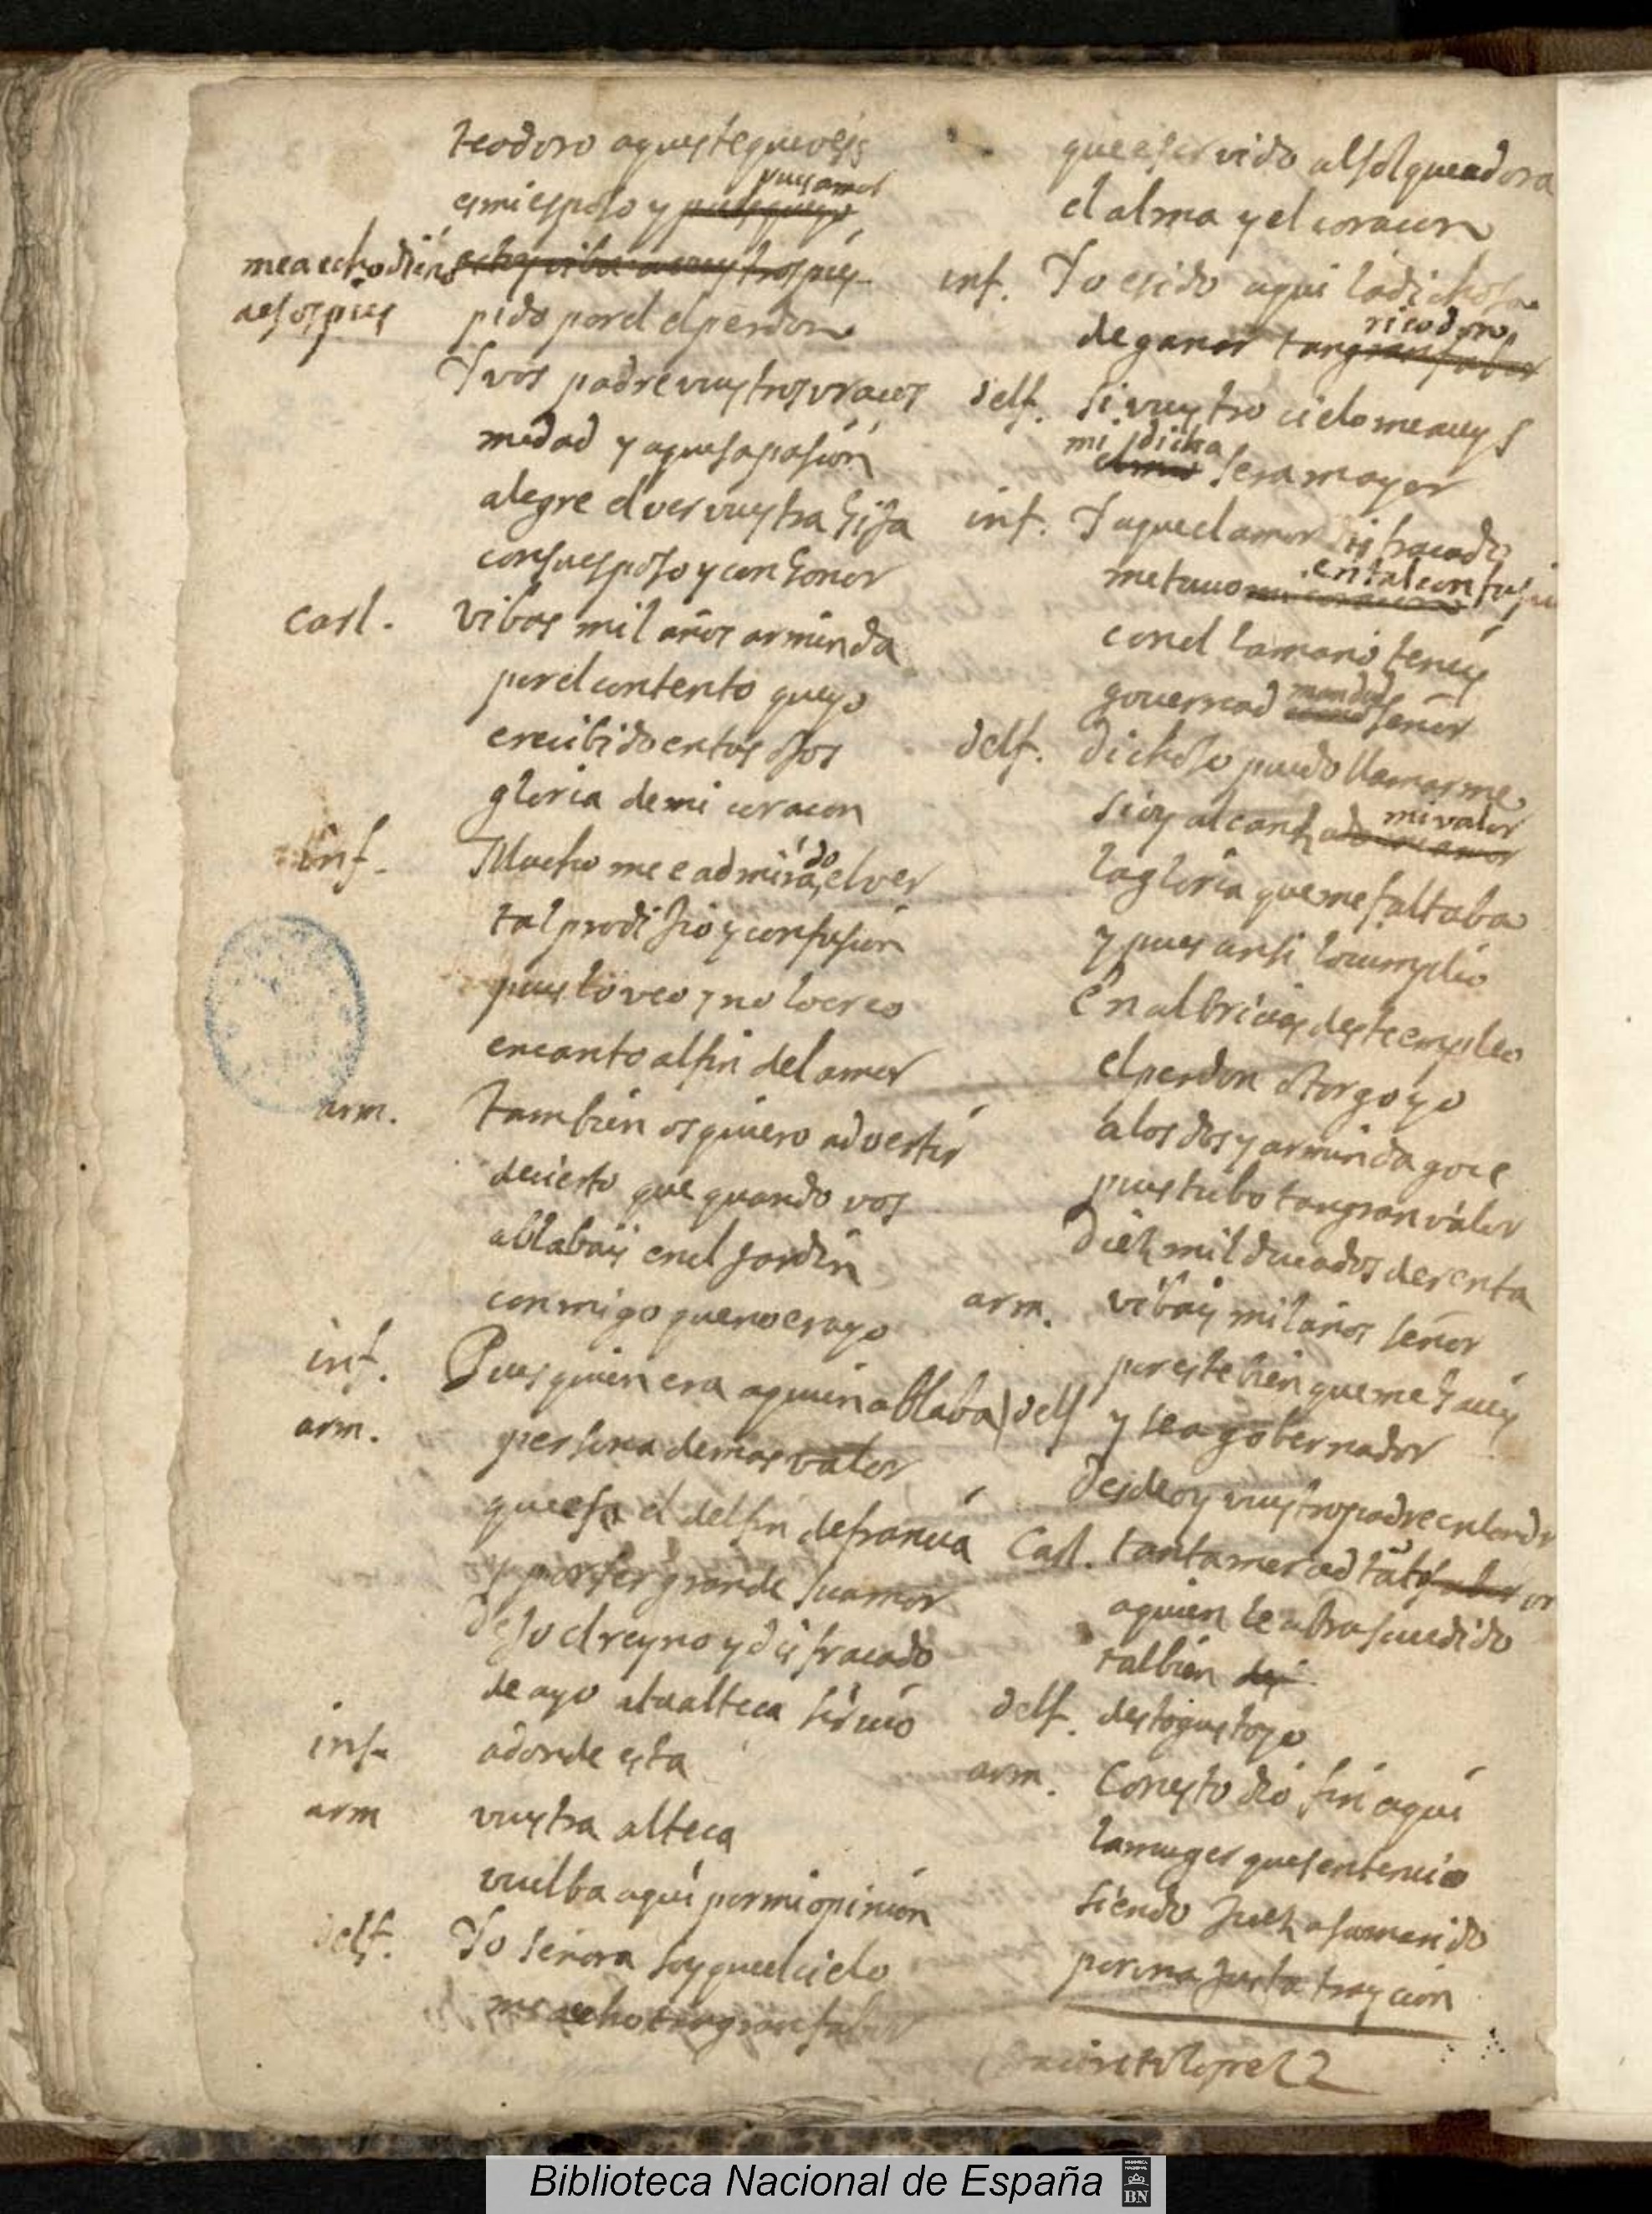 teodoro aqueste que veis
es mi esposo y pues amor
me a echo dino
de sos pies
pido por el el perdon
Y vos padre vuestros bracos
me dad y aquesa pasion
alegre el ver vuestra hija
con su esposo y con honor
carl. vibas mil años arminda
por el contento que yo
e recibido en tus ojos
gloria de mi coracon
inf. Mucho me e admirado el ver
tal prodijio y confusion
pues lo veo y no lo creo
encanto al fin del amor
arm. tambien os quiero advertir
de cierto que quando vos
ablabais en el jardin
conmigo que no era yo
inf. Pues quien era a quien ablaba
arm. persona de mas valor
que es el delfin de francia
y por ser grande su amor
dejo el reyno y disfracado
de ayo a tu alteca sirvio
inf. adonde esta
arm vuestra alteca
vuelba aqui por mi opinion
delf. Yo señora soy que el cielo
me a echo tan gran fabor
que e servido al sol que adora
el alma y el coracon
inf. Yo e sido aqui la dichosa
de ganar tan rico don
delf. si vuestro cielo merezco
mi dicha sera mayor
inf. Y a que el amor disfracado
me tuvo en tal confusion
con el la mano teneis
governad mandad señor
delf. Dichoso puedo llamarme
si oy alcanza mi valor
la gloria que me faltaba
y pues ansi lo cumplio
En albricias deste empleo
el perdon otorgo yo
a los dos y arminda goce
pues tubo tan gran valor
Diez mil ducados de renta
arm. vibais mil años señor
por este bien que me haceis
delf y sea gobernador
desde oy vuestro padre en londres
Carl. tanta merced tāto
a quien le abra sucedido
tal bien
delf. desto gusto yo
arm. Con esto dio fin aqui
la muger que sentencio
siendo juez a su marido
por una justa traycion